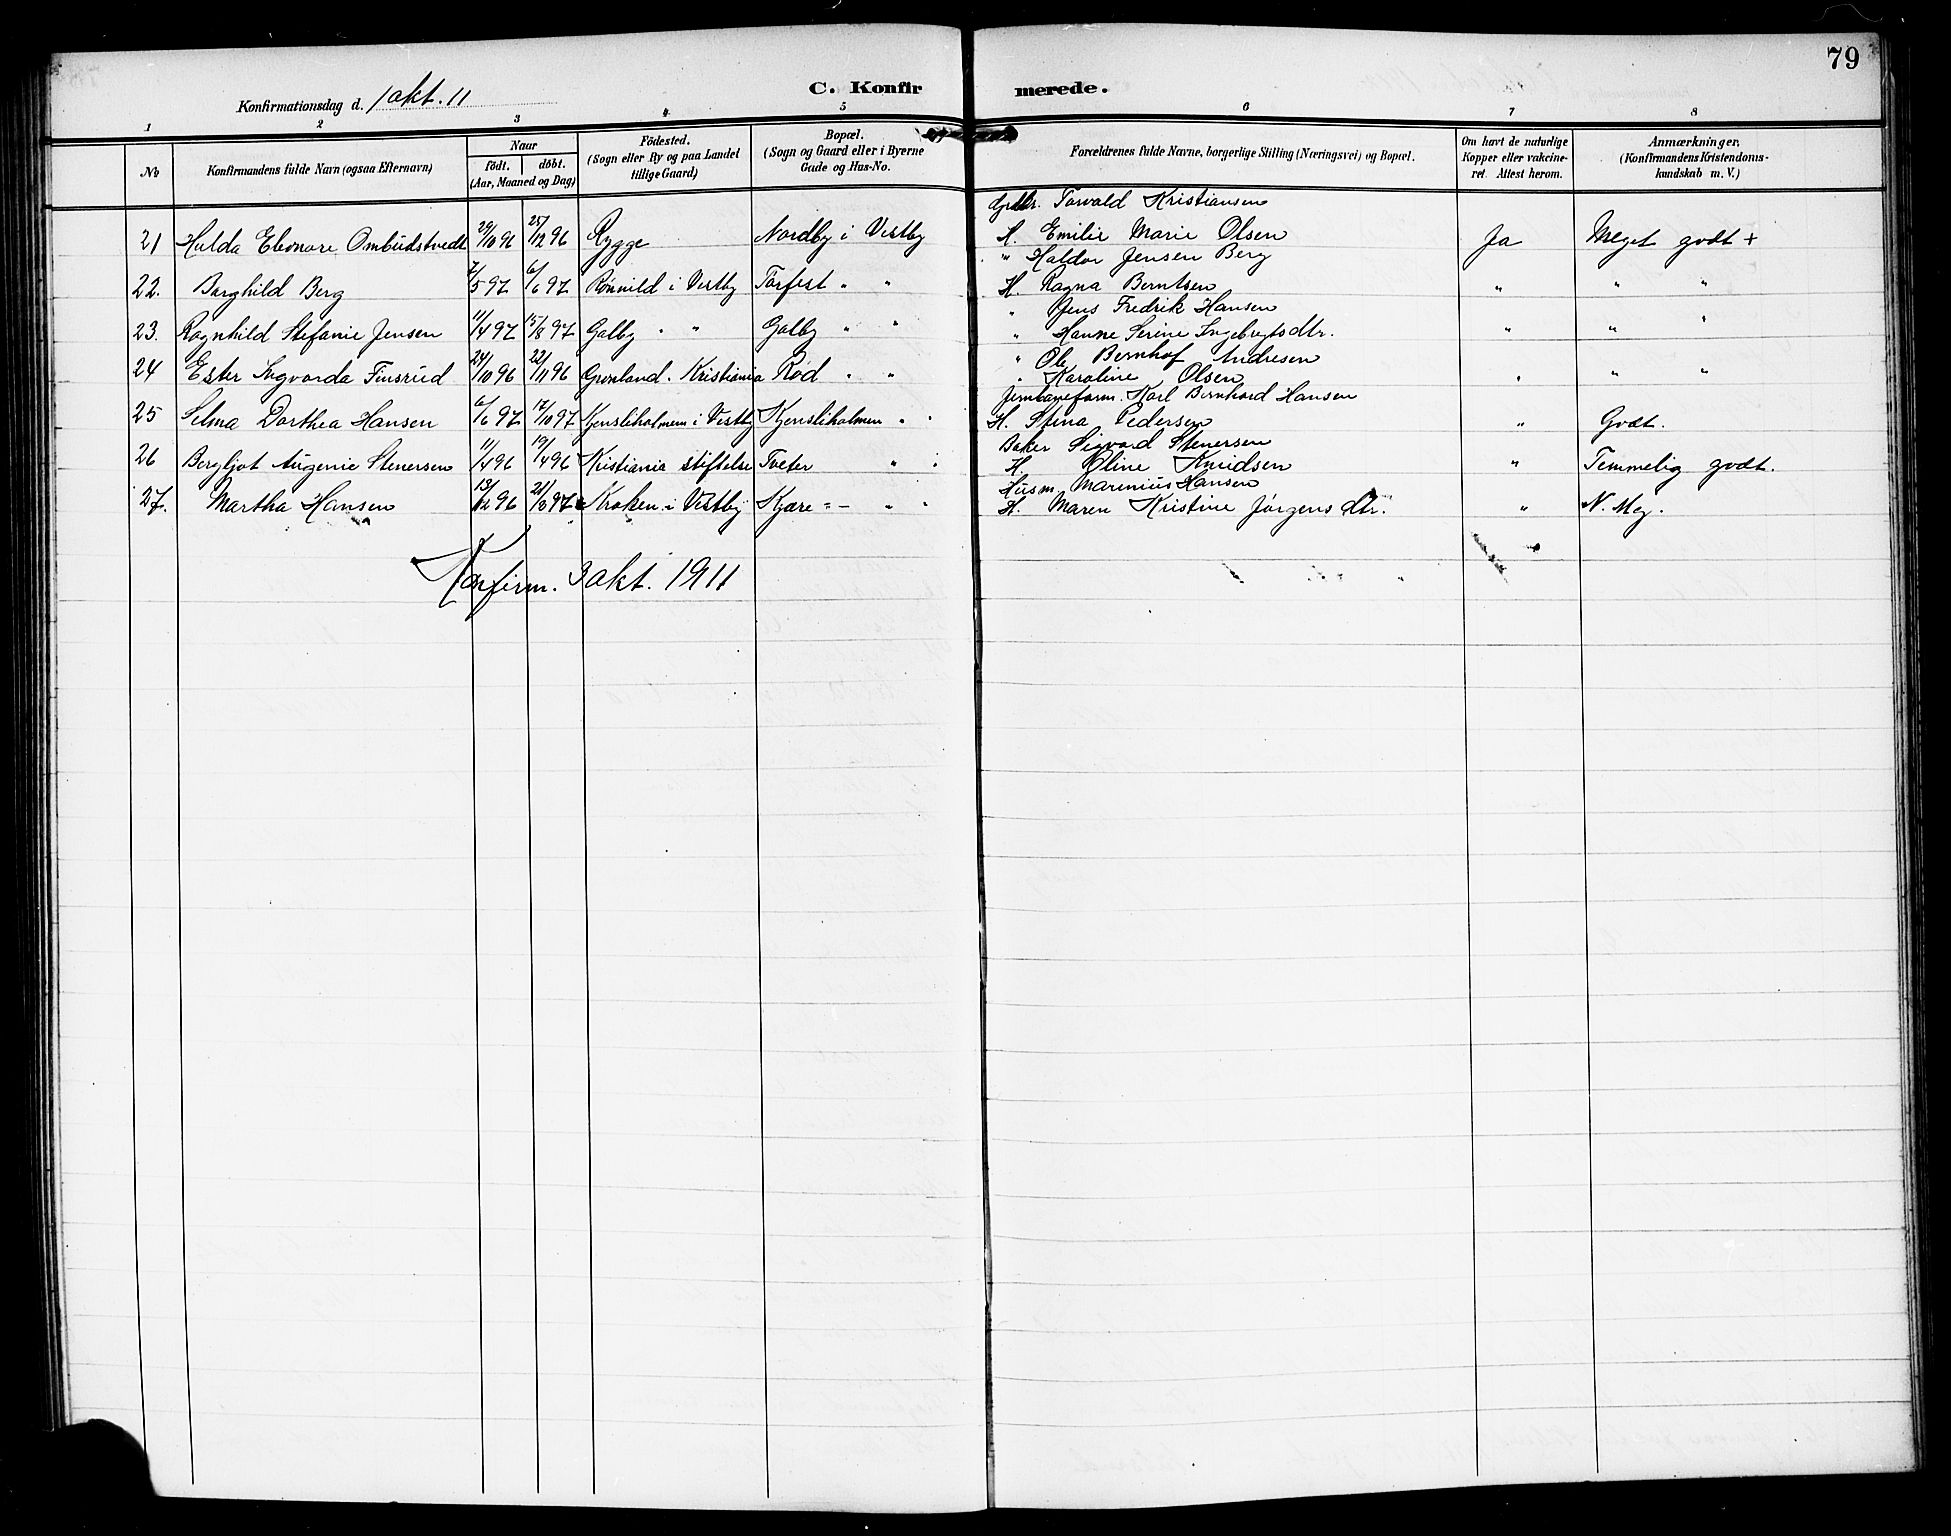 79
Konfirmationsdag d. 1 okt. 11
C. Konfirmerede.
1 2 3 4 5 6 7 8
No
Konfirmandens fulde Navn (ogsaa Efternavn)
Naar
födt. döbt.
(Aar, Maaned og Dag)
Födested.
(Sogn eller By og paa Landet
tillige Gaard)
Bopæl.
(Sogn og Gaard eller i Byerne
Gade og Hus-No.
Forældrenes fulde Navne, borgerlige Stilling (Næringsvei) og Bopæl.
Om havt de naturlige
Kopper eller vakcine-
ret. Attest herom.
Anmærkninger,
(Konfirmandens Kristendoms-
kundskab m. V.)
Torvald Kristiansen
21 Hulda Eleonore Ombudstvedt 29/10 96 25/12 96 Rygge Nordby i Vestby H. Emilie Marie Olsen Ja Meget godt +
" Haldor Jensen Berg
22. Borghild Berg 2/5 97 6/6 97 Rønnild i Vestby Torfest " " H. Ragna Berntsen " " "
" Jens Fredrik Hansen
23. Ragnhild Stefanie Jensen 11/4 97 15/8 97 Galby " " Galby " " " Hanne Serine Ingebregtsdtr. " " "
" Ole Bernhof Andresen
24 Ester Ingvarda Finsrud 24/10 96 22/11 96 Grønland. Kristiania Rød " " " Karoline Olsen " " "
Jernbaneform. Karl Bernhard Hansen
25 Selma Dorthea Hansen 6/6 97 17/10 97 Kjensliholmen i Vestby Kjensliholmen " " H. Stina Pedersen " Godt.
Baker Sigvard Stenersen
26 Bergljot Augenie Stenersen 11/4 96 19/4 96 Kristiania stiftelse Tveter " " H. Oline Knudsen " Temmelig godt.
Husm. Marenius Hansen
27. Martha Hansen 13/12 96 Kroken i Vestby Kjære =- " " H. Maren Kristine Jørgens dtr. " N. Meg.
Konfirm. 3 okt. 1911